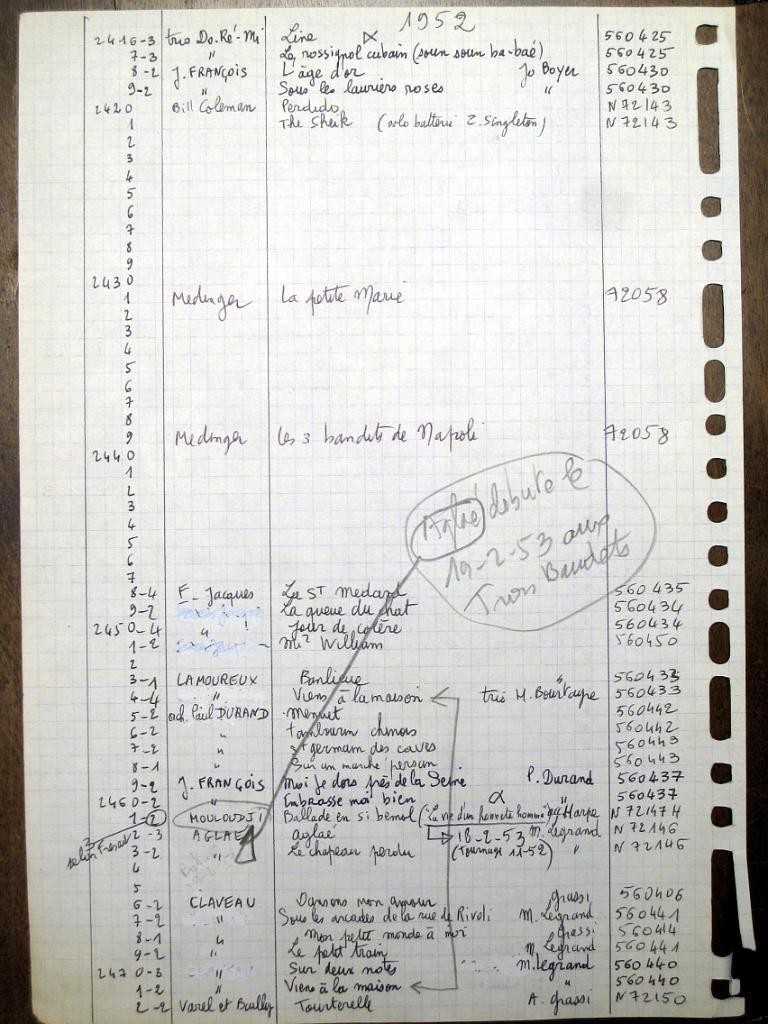 1952
2416-3 trio Do.Ré-Mi Line 560425
7-3 " Le rossignol cubain (soun soun ba-baé) 560425
8-2 J. FRANÇOIS L'âge d'or Jo Boyer 560430
9-2 " Sous les lauriers roses " 560430
2420 Bill Coleman Perdido N 72143
1 The Sheik (solo batterie Z. Singleton) N 72143
2
3
4
5
6
7
8
9
2430
1 Medinger La petite Marie 72058
2
3
4
5
6
7
8
9 Medinger Les 3 bandits de Napoli 72058
2440
1
2
3
4
5
6
7
Aglaé débute le
19-2-53 aux
Trois Baudets
8-4 F. Jacques La St Medard 560435
9-2 La queue du chat 560434
2450-4 " ! Jour de colère 560434
1-2 Mr William 560450
2
3-1 LAMOUREUX Banlieue " 560433
4-4 " Viens à la maison trio M. Bourtayre 560433
5-2 orch. Paul DURAND Menuet 560442
6-2 " tambourin chinois 560442
7-2 " St germain des caves 560443
8-1 " Sur un marché persan 560443
9-2 J. FRANÇOIS Moi je dors près de la Seine P. Durand 560437
2460-2 " Embrasse moi bien " 560437
1-2 MOULOUDJI Ballade en si bemol ("La vie d'un honnête homme") Harpe N 72147
2-3 AGLAE aglaé 18-2-53 M. Legrand N 72146
3-2 " Le chapeau perdu (Tournage 11-52) " N 72146
3 selon
4
5
6-2 CLAVEAU Dansons mon amour grassi 560406
7-2 " Sous les arcades de la rue de Rivoli M. Legrand 560441
8-1 " Mon petit monde à moi grassi 560414
9-2 " Le petit train M. Legrand 560441
2470-3 " Sur deux notes M. Legrand 560440
1-2 " Viens à la maison " 560440
2-2 Varel et Bailly Tourterelle A. grassi N 72150